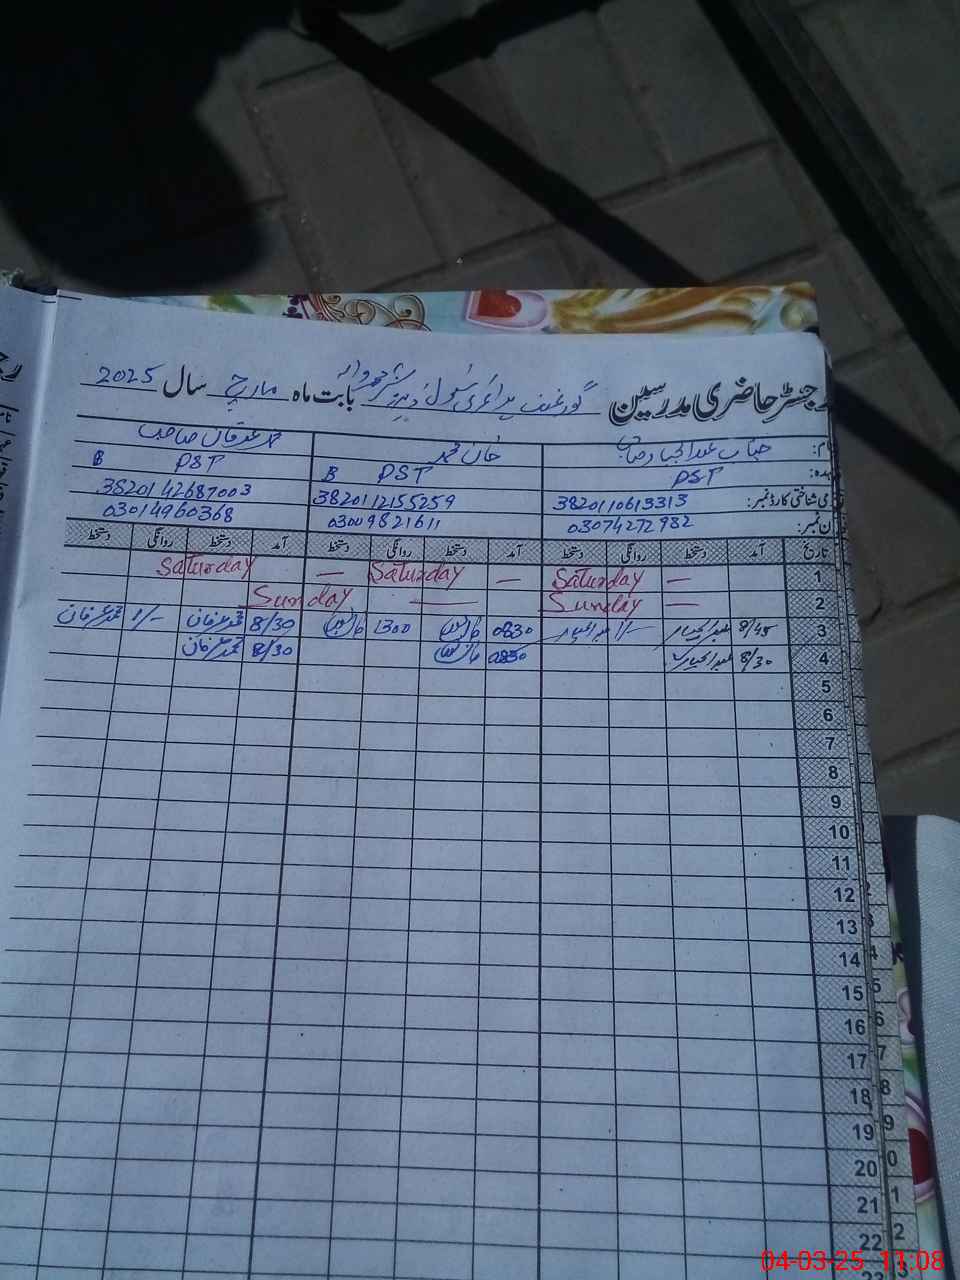 رجسٹر حاضری مدرسین گورنمنٹ پرائمری سکول بابت ماہ مارچ سال 2025
نام: جناب عبدالجبار صاحب خان محمد محمد عرفان صاحب
عہدہ: PST PST B PST B
قومی شناختی کارڈ نمبر: 3820110613313 3820112155259 3820142687003
فون نمبر: 03074272982 03009821611 03014960368
تاریخ آمد دستخط روانگی دستخط آمد دستخط روانگی دستخط آمد دستخط روانگی دستخط
1 Saturday — Saturday — Saturday —
2 Sunday — Sunday —
3 8/45 عبدالجبار 1/- عبدالجبار 0830 1300 8/30 محمد عرفان 1/- محمد عرفان
4 8/30 عبدالجبار 0830 8/30 محمد عرفان
5
6
7
8
9
10
11
12
13
14
15
16
17
18
19
20
21
22
04-03-25 11:08